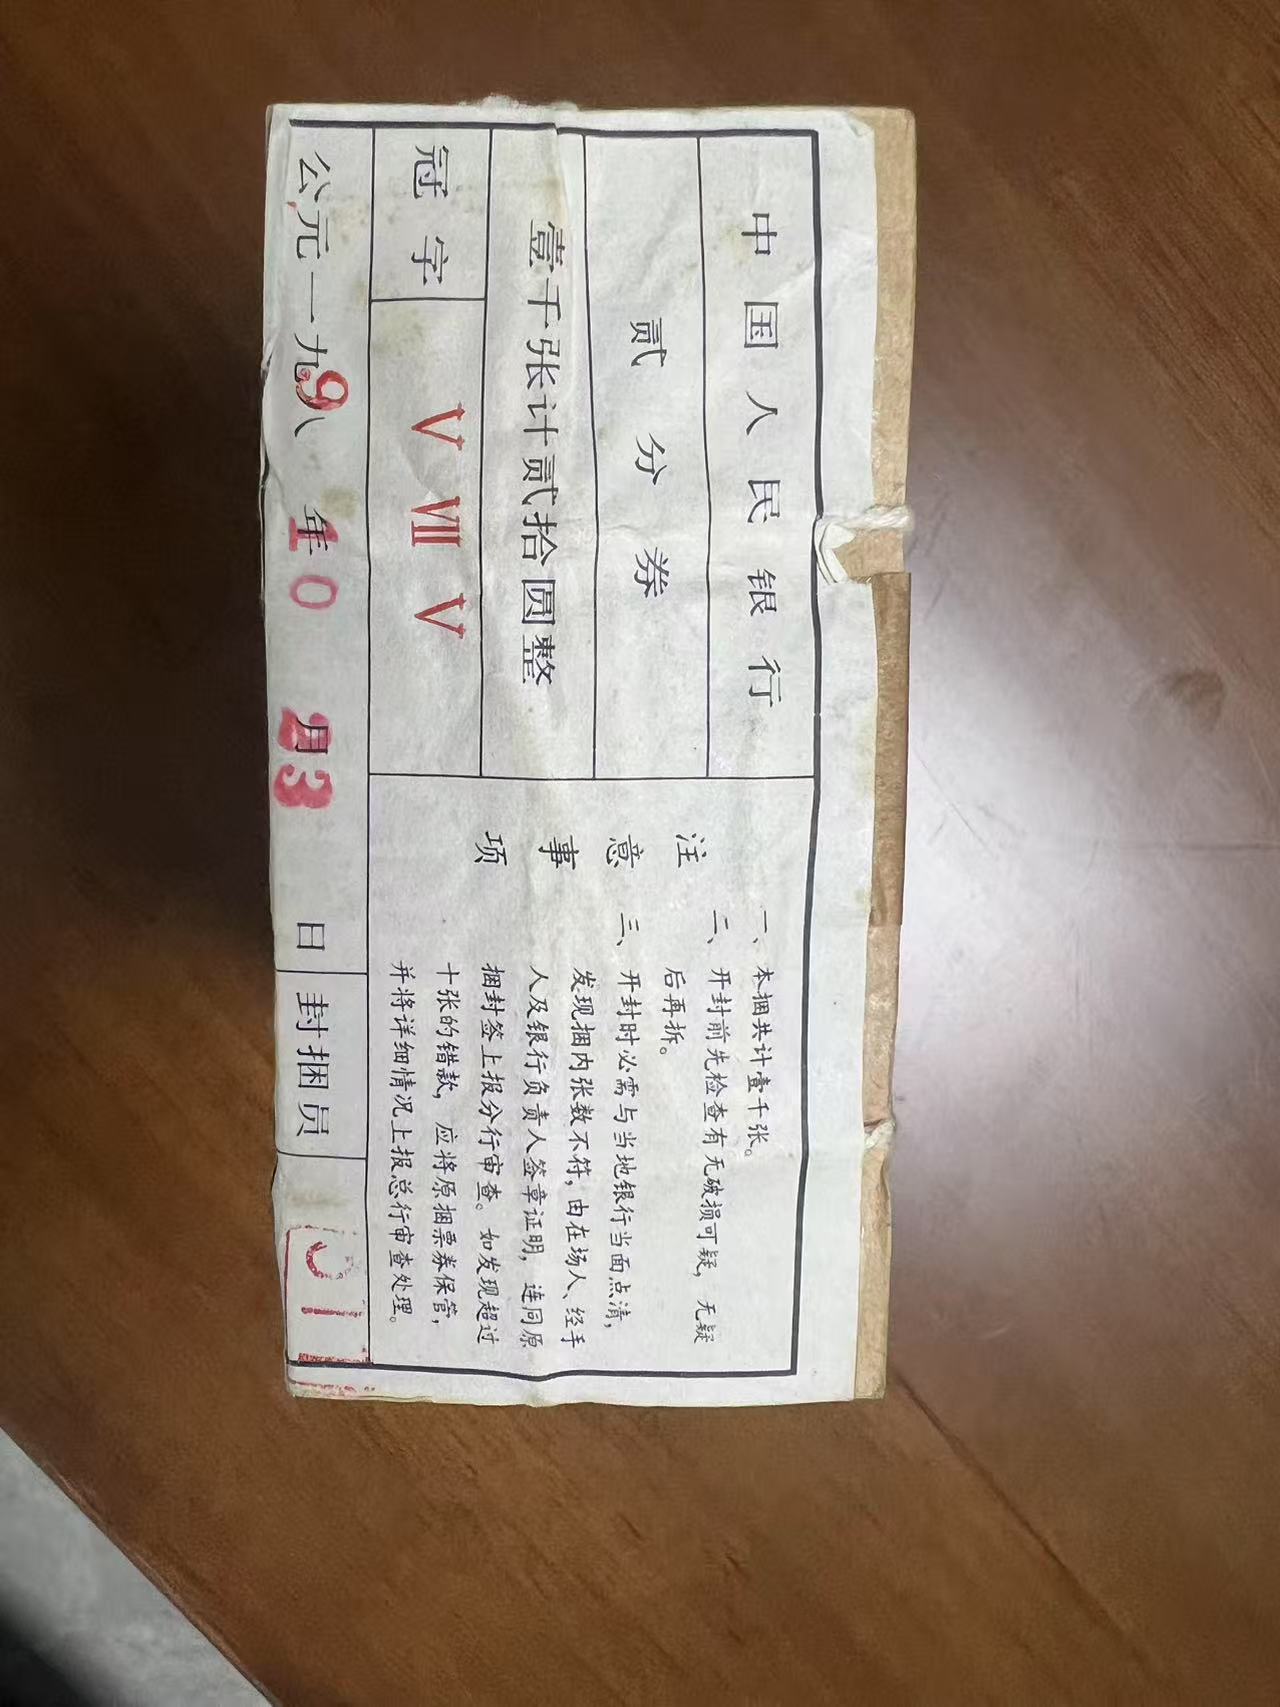 中国人民银行
贰分券
壹千张计贰拾圆整
冠字
V VII V
注意事项
一、本捆共计壹千张。
二、开封前先检查有无破损可疑，无疑
后再拆。
三、开封时必需与当地银行当面点清，
发现捆内张数不符，由在场人、经手
人及银行负责人签章证明，连同原
捆封签上报分行审查。如发现超过
十张的错款，应将原捆票券保管，
并将详细情况上报总行审查处理。
公元一九八9年10月23日
封捆员